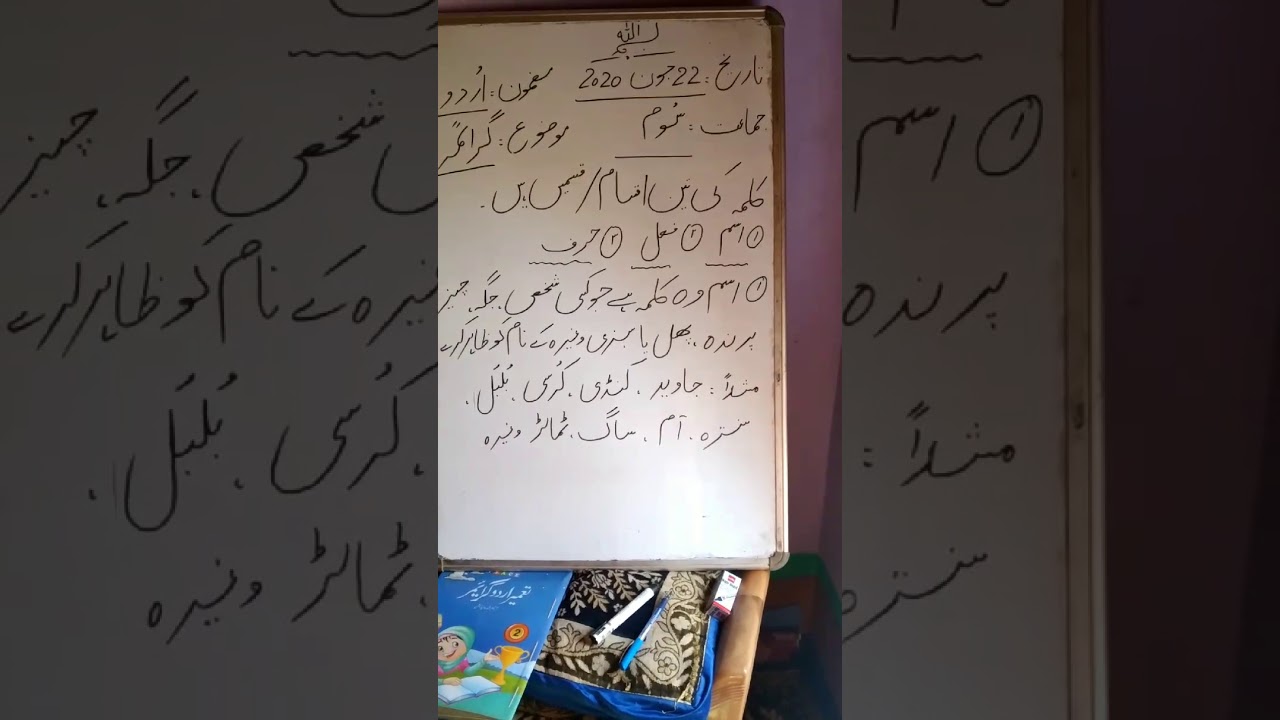 بسم اللہ
تاریخ: 22 جون 2020 مضمون: اُردو
جماعت: سُوم موضوع: گرائمر
کلمہ کی تین اقسام/قسمیں ہیں۔
① اسم ② فعل ③ حرف
① اسم وہ کلمہ ہے جو کسی شخص، جگہ، چیز
پرندہ، پھل یا سبزی وغیرہ کے نام کو ظاہر کرے
مثلاً: جاوید، کنڈی، کُرسی، بُلبُل،
سنترہ، آم، ساگ، ٹماٹر وغیرہ
تعمیر اردو گرائمر
2